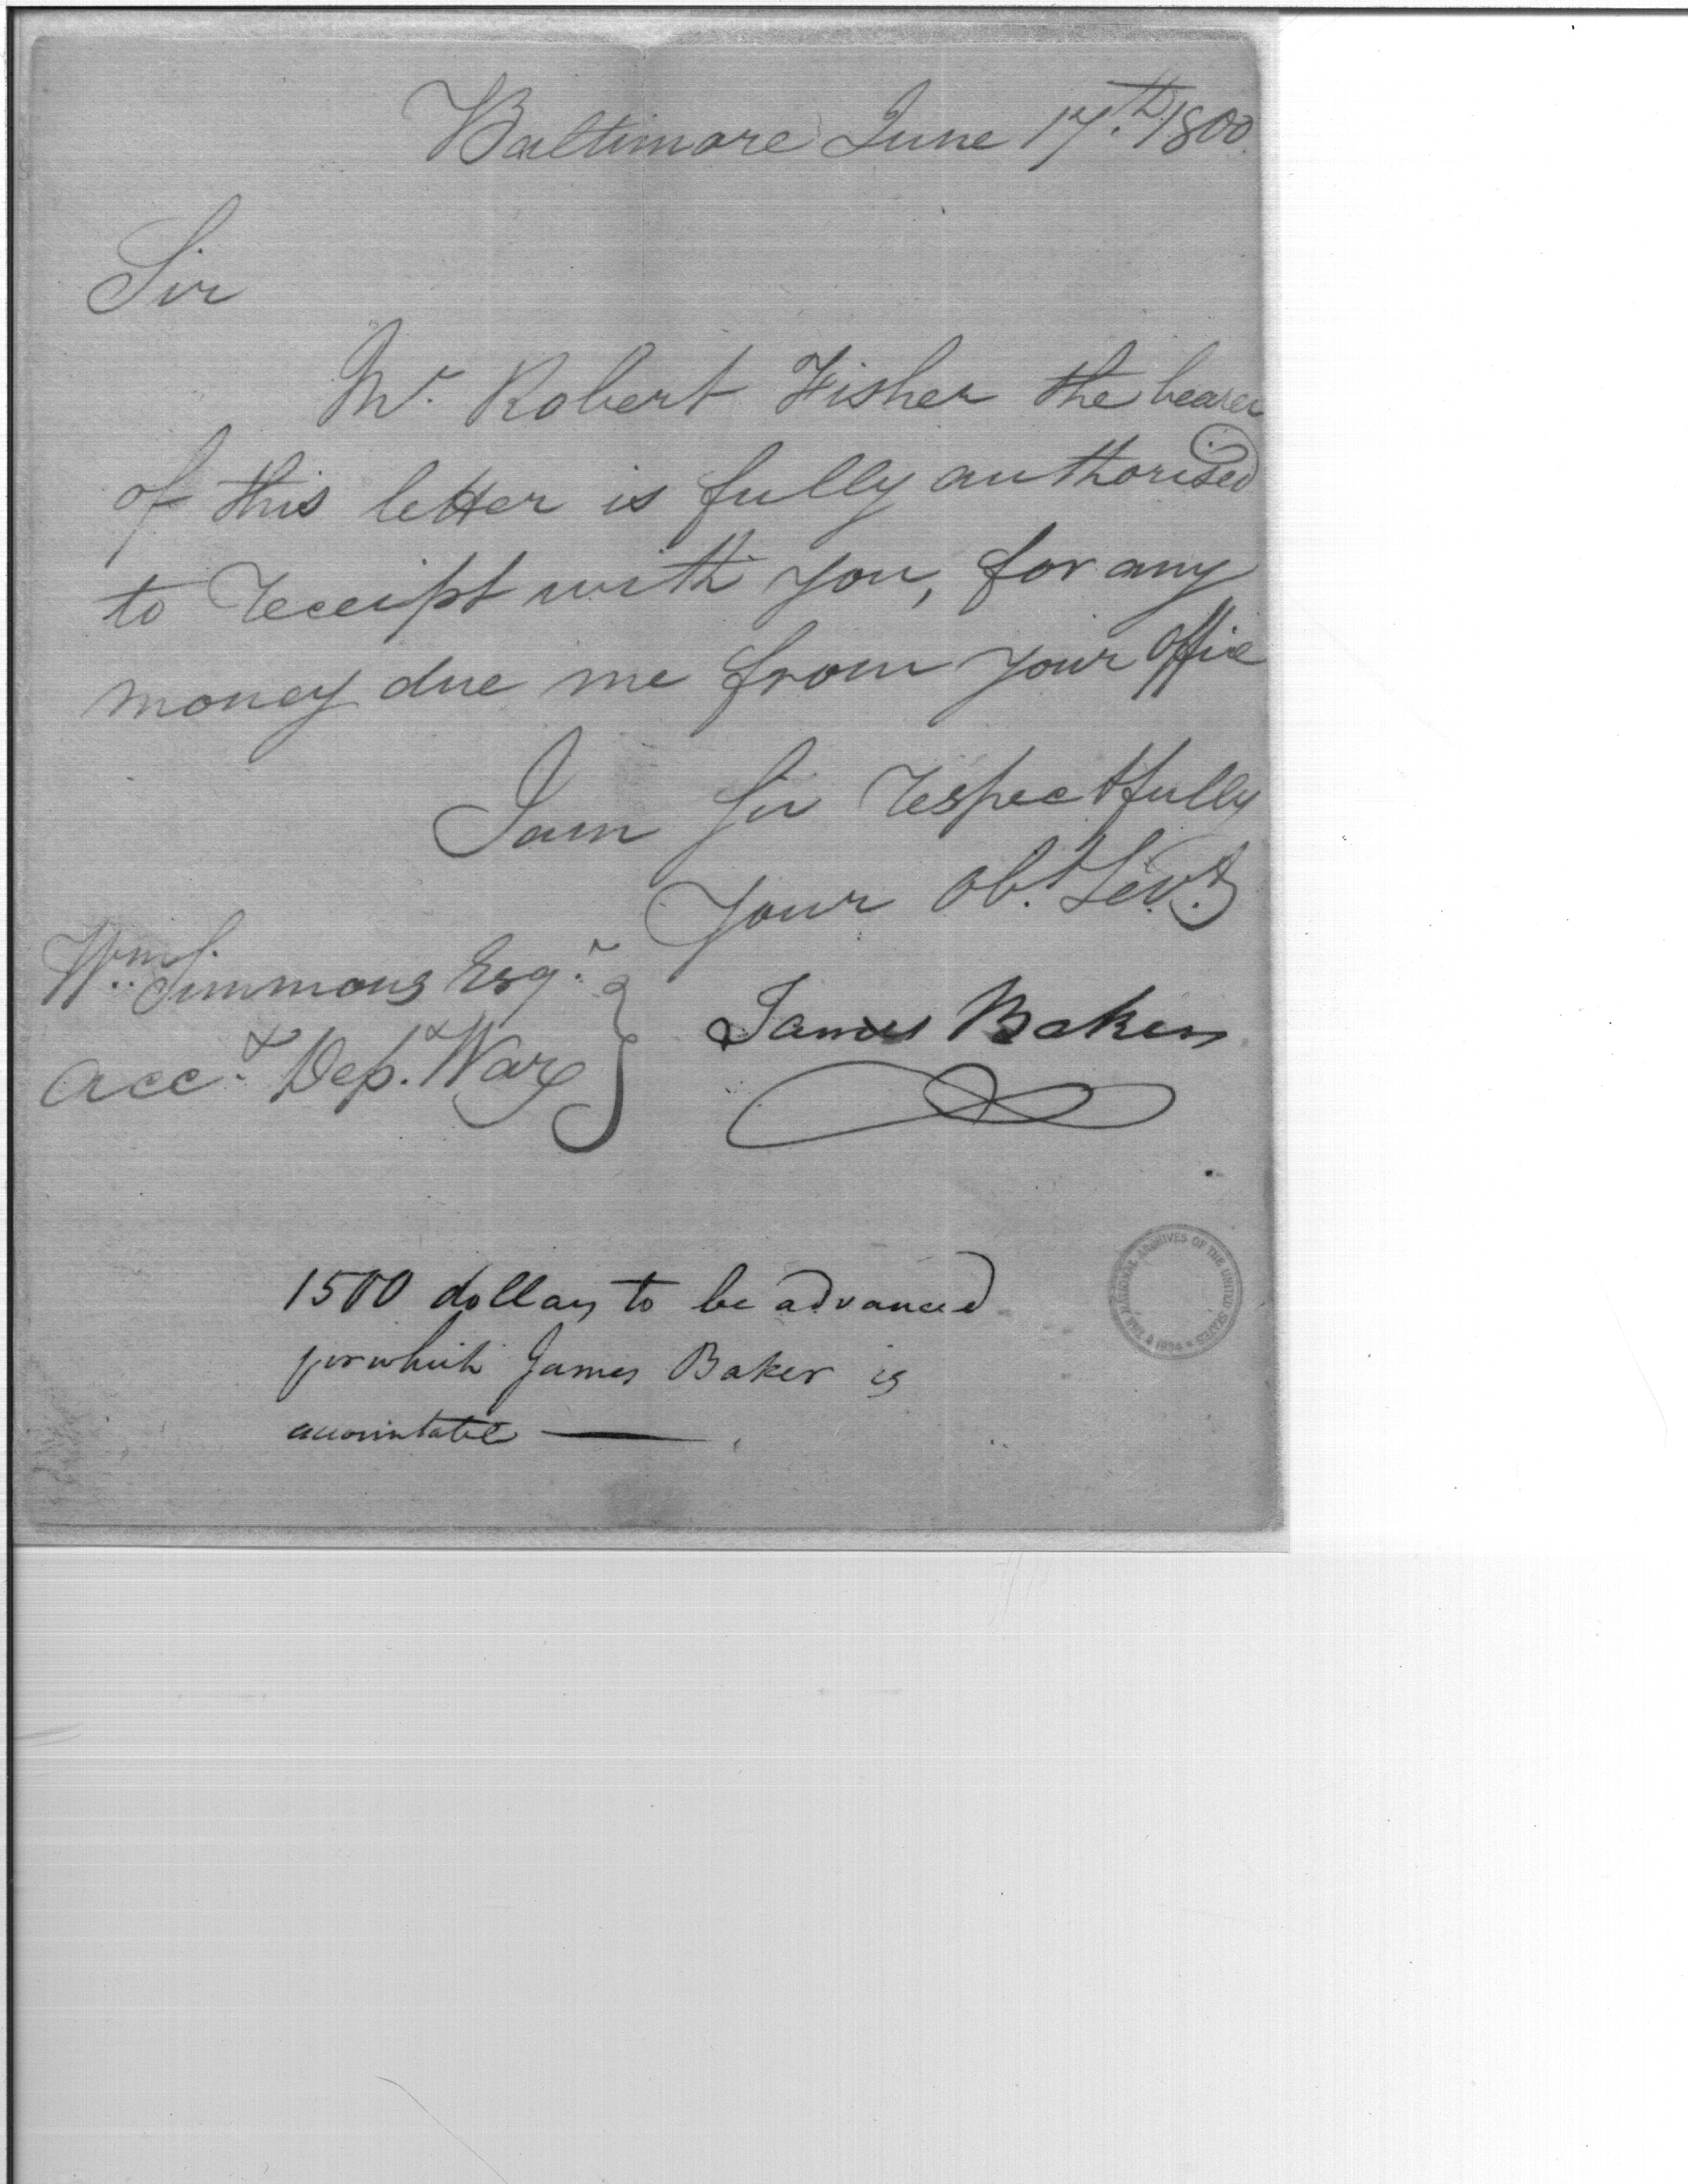 Baltimore June 17.th 1800.
Sir
Mr. Robert Fisher the bearer
of this letter is fully authorised
to receipt with you, for any
money due me from your office
I am Sir respectfully
Your obt. Servt.
Wm. Simmons Esqr.
Acct. Dept. War
James Baker
1500 dollars to be advanced
for which James Baker is
accountable
THE NATIONAL ARCHIVES OF THE UNITED STATES
1934